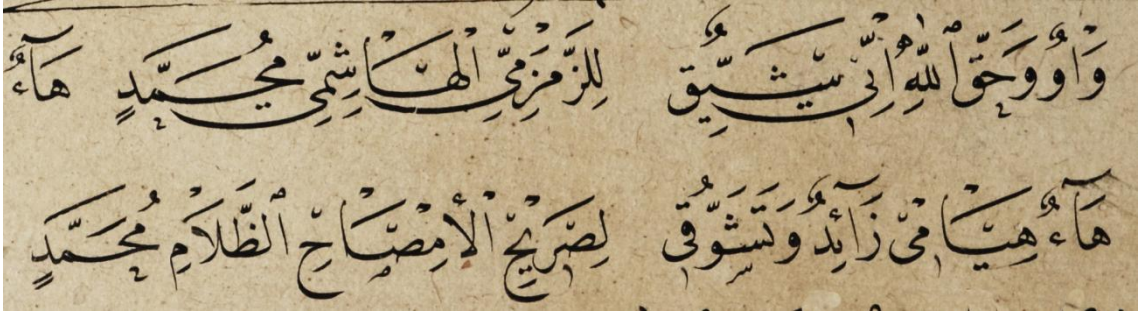 وَاوٌ وَحَقِّ ٱللّٰهِ اِنِّى شَيِّقٌ لِلزَّمْزَمِىِّ الْهَاشِمِىِّ مُحَمَّدٍ هَآءٌ
هَآءٌ هِيَامِىْ زَآئِدٌ وَتَشَوُّقِى لِضَرِيْحِ الْأَمِصْبَاحِ ٱلظَّلَامِ مُحَمَّدٍ